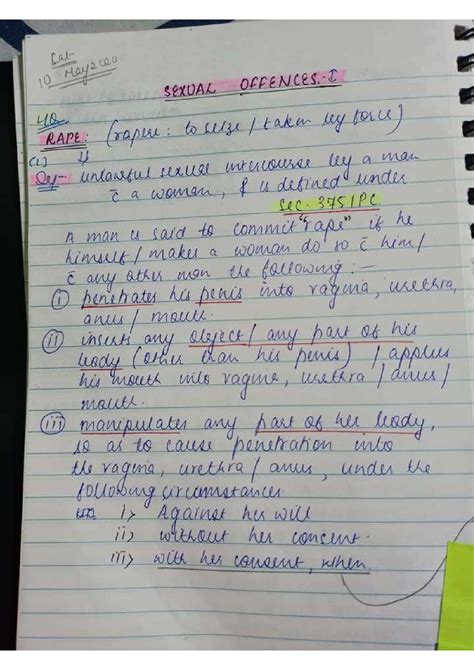 Sat-
10 May 2020
SEXUAL OFFENCES-I
40
RAPE: (rapere: to seize / taken by force)
(1.) ↓
Def- unlawful sexual intercourse by a man
c̄ a woman, & is defined under
Sec. 375 IPC
A man is said to commit "rape" if he
himself / makes a woman do so c̄ him/
c̄ any other man the following:-
(i) penetrates his penis into vagina, urethra,
anus / mouth.
(ii) inserts any object / any part of his
body (other than his penis) / applies
his mouth into vagina, urethra / anus /
mouth.
(iii) manipulates any part of her body,
so as to cause penetration into
the vagina, urethra / anus, under the
following circumstances
i) Against her will
ii) without her consent.
iii) with her consent, when.